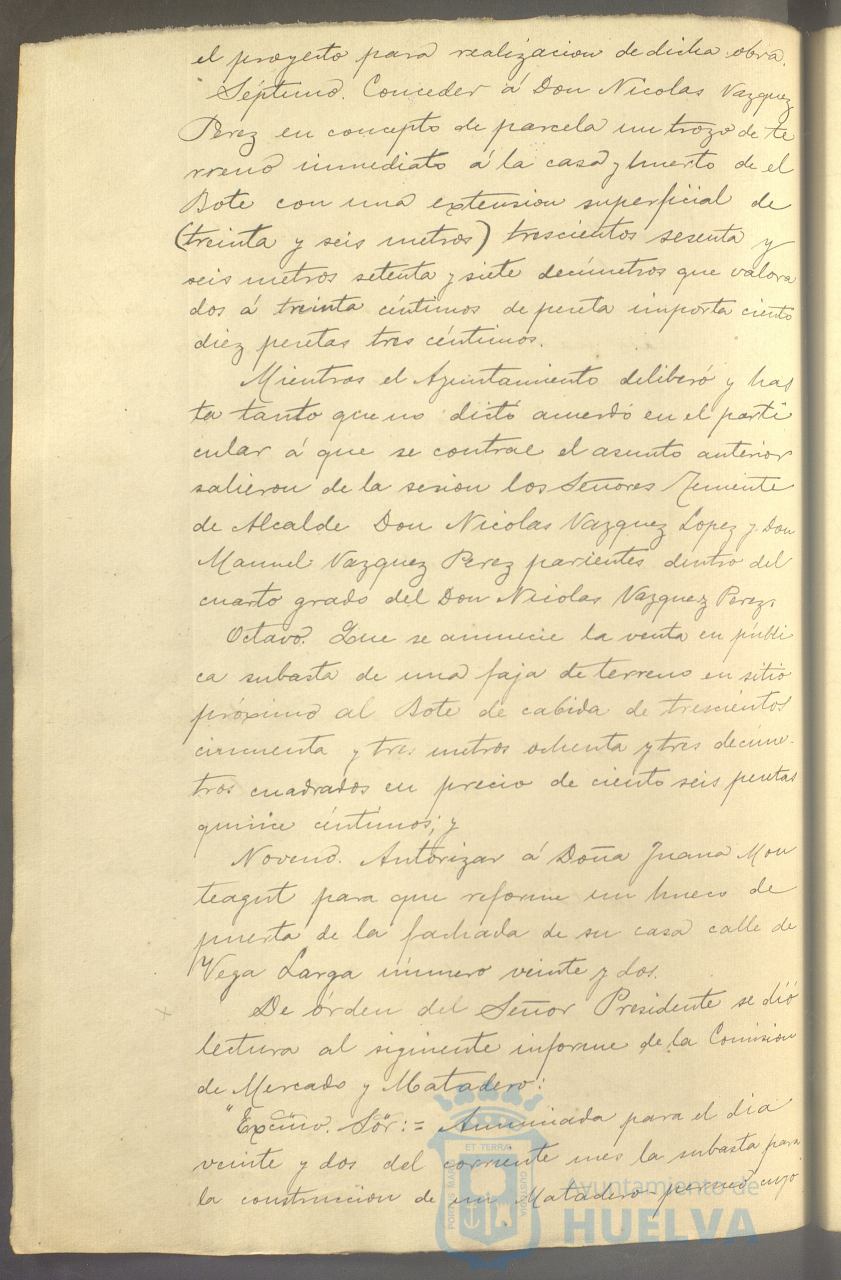 el proyecto para realizacion de dicha obra.
Séptimo. Conceder á Don Nicolas Vazquez
Perez en concepto de parcela un trozo de te
rreno inmediato á la casa y huerto de el
Bote con una extension superficial de
(treinta y seis metros) trescientos sesenta y
seis metros setenta y siete decímetros que valora
dos á treinta céntimos de peseta importa ciento
diez pesetas tres céntimos.
Mientras el Ayuntamiento deliberó y has
ta tanto que no dictó acuerdo en el parti
cular á que se contrae el asunto anterior
salieron de la sesion los Señores Teniente
de Alcalde Don Nicolas Vazquez Lopez y Don
Manuel Vazquez Perez parientes dentro del
cuarto grado del Don Nicolas Vazquez Perez.
Octavo. Que se anuncie la venta en públi
ca subasta de una faja de terreno en sitio
próximo al Bote de cabida de trescientos
cincuenta y tres metros ochenta y tres decíme-
tros cuadrados en precio de ciento seis pesetas
quince céntimos; y
Noveno. Autorizar á Doña Juana Mon
teagut para que reforme un hueco de
puerta de la fachada de su casa calle de
Vega Larga número veinte y dos.
De órden del Señor Presidente se dió
lectura al siguiente informe de la Comision
de Mercado y Matadero:
"Excmo. Sor: = Anunciada para el dia
veinte y dos del corriente mes la subasta para
la construccion de un Matadero público cuyo
ET TERRAE
PORTUS MARIS
CUSTODIA
Ayuntamiento de
HUELVA